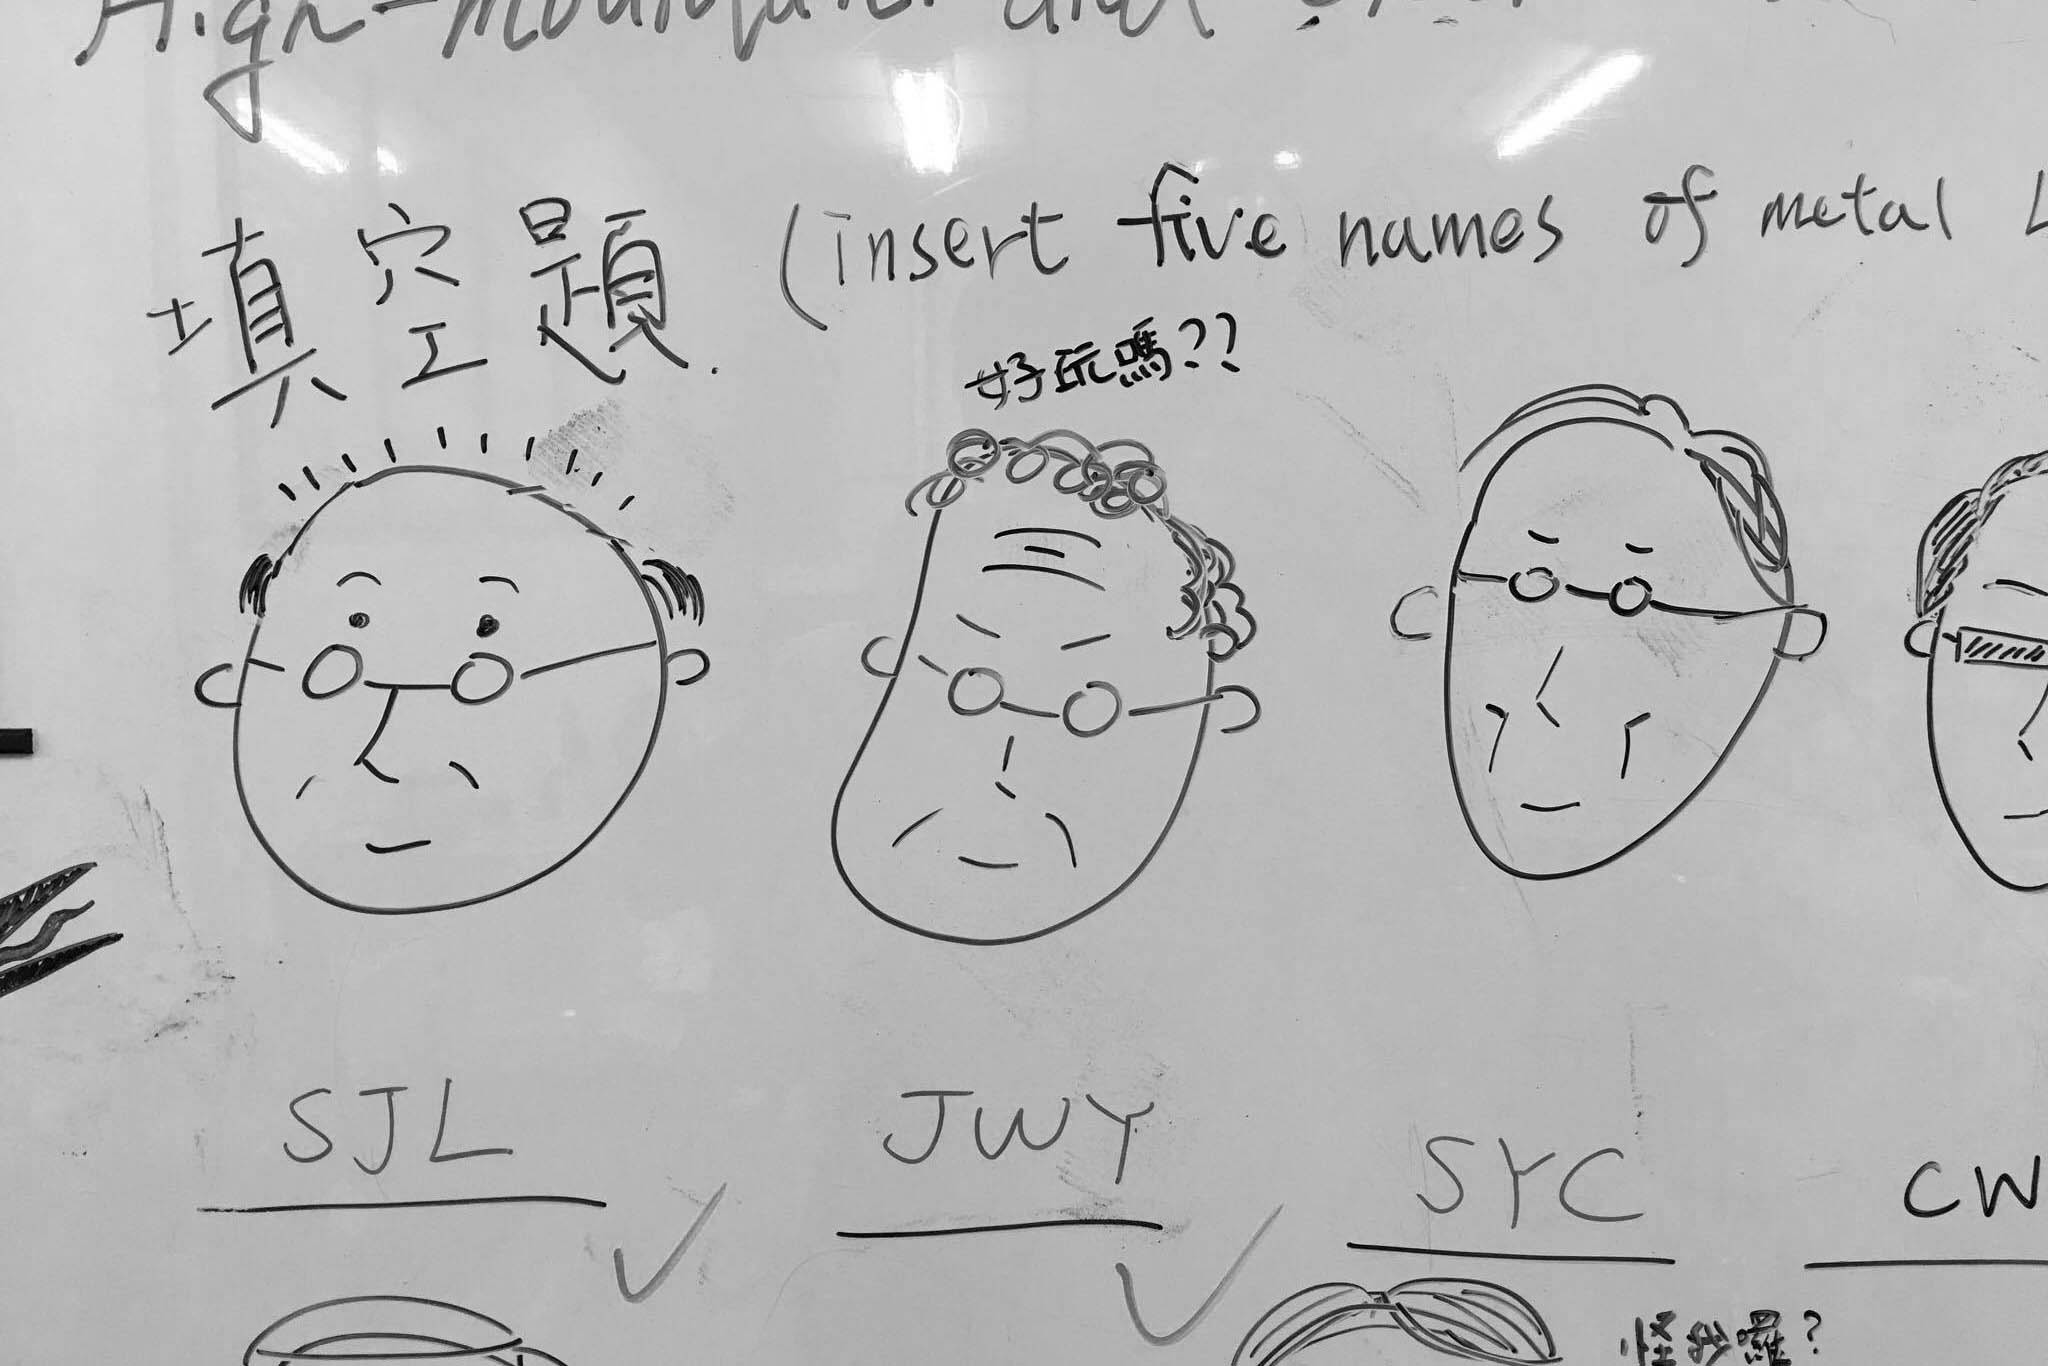 High-modulus and
填空題 (insert five names of metal
好玩嗎??
SJL
JWY
SYC
CW
怪我囉?